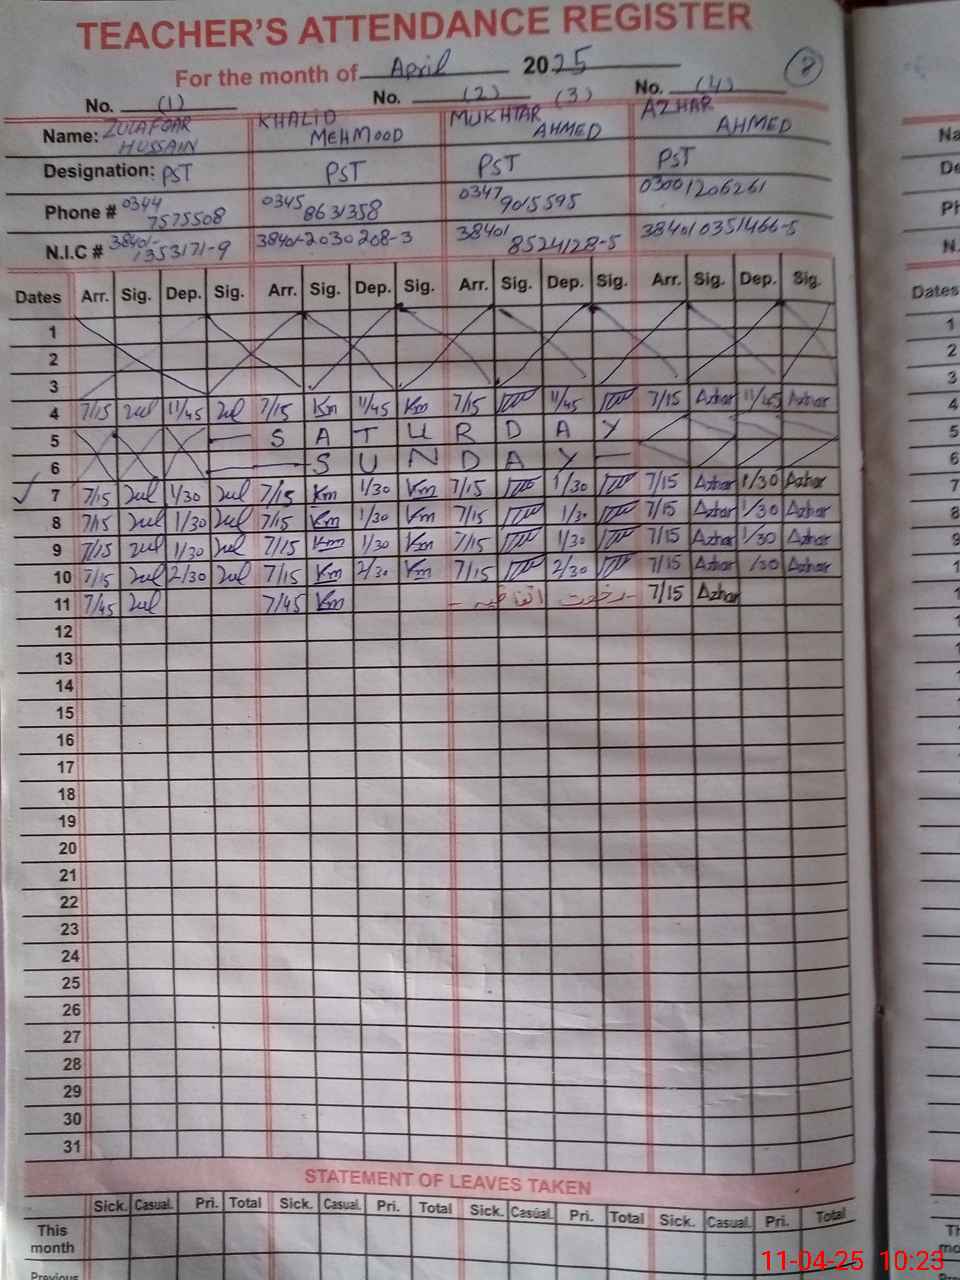 TEACHER'S ATTENDANCE REGISTER
For the month of April 2025
8
No. (1) No. (2) (3) No. (4)
Name: ZULAFQAR HUSSAIN KHALID MEHMOOD MUKHTAR AHMED AZHAR AHMED
Designation: PST PST PST PST
Phone # 0344 7575508 0345 8631358 0347 9015595 03001206261
N.I.C # 38401-1353171-9 38401-2030208-3 38401 8524128-5 38401 0351466-5
Dates Arr. Sig. Dep. Sig. Arr. Sig. Dep. Sig. Arr. Sig. Dep. Sig. Arr. Sig. Dep. Sig.
1
2
3
4 7/15 Zul 11/45 Zul 7/15 Km 11/45 Km 7/15 11/45 7/15 Azhar 11/45 Azhar
5 SATURDAY
6 SUNDAY
7 7/15 Zul 1/30 Zul 7/15 Km 1/30 Km 7/15 1/30 7/15 Azhar 1/30 Azhar
8 7/15 Zul 1/30 Zul 7/15 Km 1/30 Km 7/15 1/30 7/15 Azhar 1/30 Azhar
9 7/15 Zul 1/30 Zul 7/15 Km 1/30 Km 7/15 1/30 7/15 Azhar 1/30 Azhar
10 7/15 Zul 2/30 Zul 7/15 Km 2/30 Km 7/15 2/30 7/15 Azhar /30 Azhar
11 7/45 Zul 7/45 Km رخصت اتفاقیہ 7/15 Azhar
12
13
14
15
16
17
18
19
20
21
22
23
24
25
26
27
28
29
30
31
STATEMENT OF LEAVES TAKEN
Sick. Casual. Pri. Total Sick. Casual. Pri. Total Sick. Casual. Pri. Total Sick. Casual. Pri. Total
This month
Previous
11-04-25 10:23